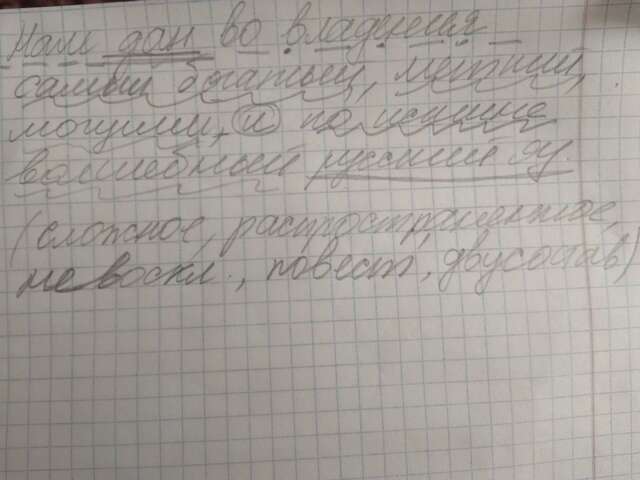 Нам дан во владения
самый богатый, меткий,
могучий, и по истине
волшебный русский яз.
(сложное, распространенное,
невоскл., повест, двусостав)